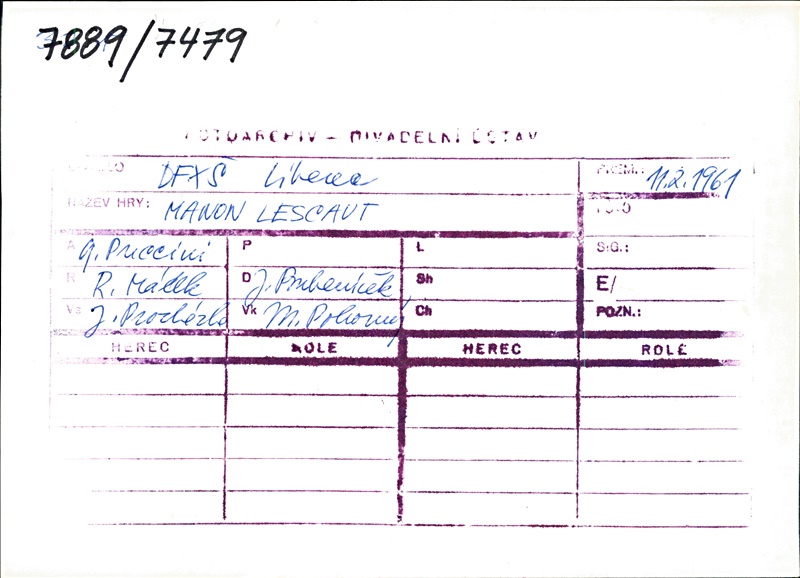 7889/7479
FOTOARCHIV – DIVADELNÍ ÚSTAV
DIVADLO DFXŠ Liberec PREM.: 11.2.1961
NÁZEV HRY: MANON LESCAUT FOTO
A G. Puccini P L SIG.:
R R. Málek D J. Sh E/
Vs J. Procházka Vk M. Pokorný Ch POZN.:
HEREC ROLE HEREC ROLE